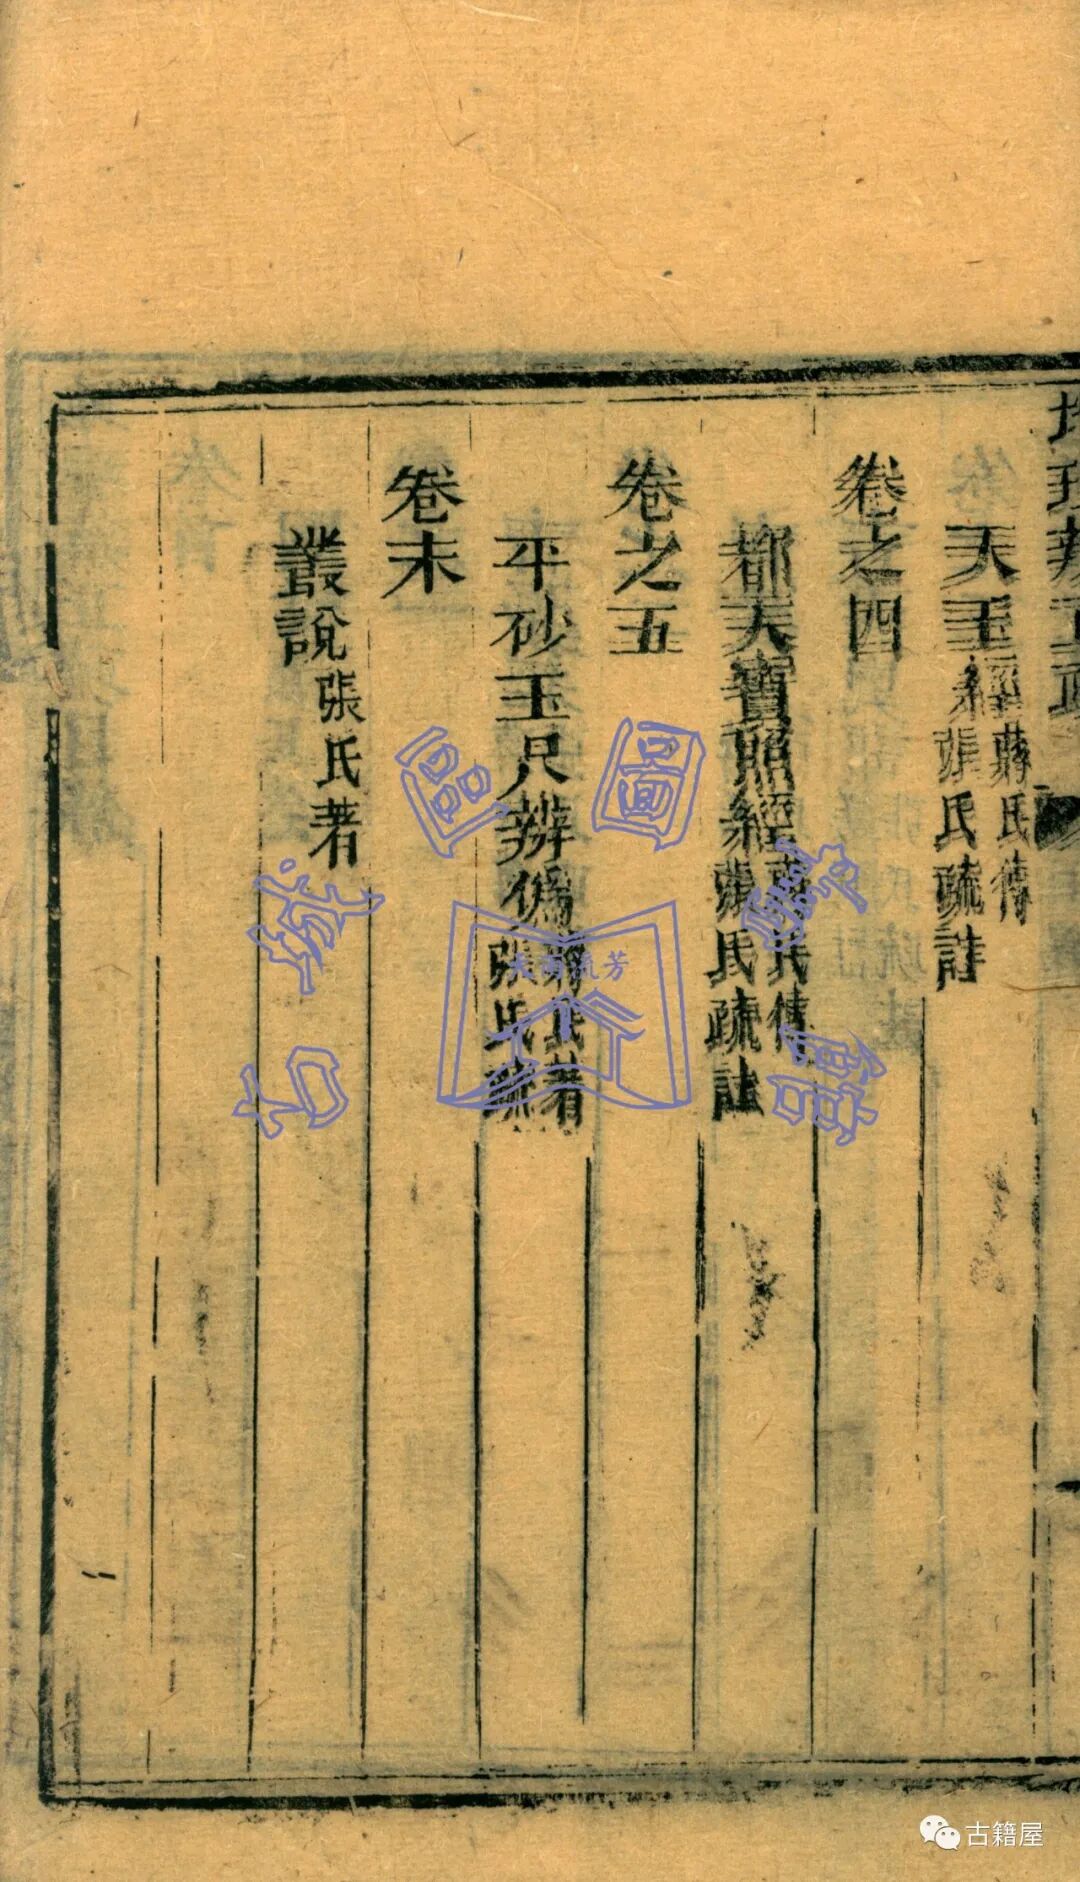 地理辨正疏
天玉經 蔣氏傳
張氏疏註
卷之四
都天寶照經 蔣氏傳
張氏疏註
卷之五
平砂玉尺辨偽 蔣氏著
張氏疏
卷末
叢說 張氏著
古城區圖書館
古籍屋